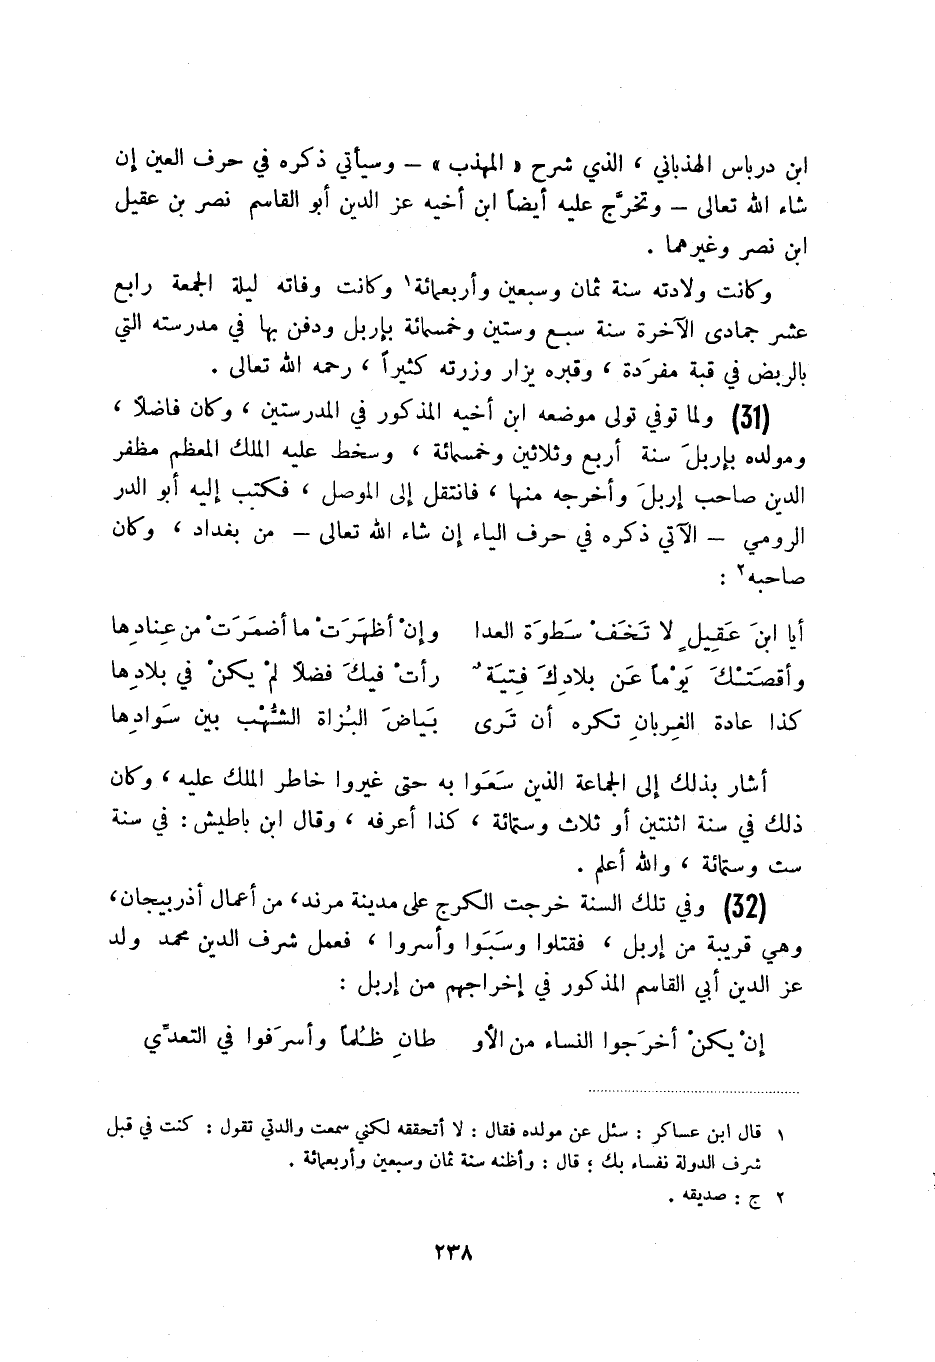 ابن درباس الهذباني ، الذي شرح « المهذب » – وسيأتي ذكره في حرف العين إن
شاء الله تعالى – وتخرَّج عليه أيضاً ابن أخيه عز الدين أبو القاسم نصر بن عقيل
ابن نصر وغيرهما .
وكانت ولادته سنة ثمان وسبعين وأربعمائة١ وكانت وفاته ليلة الجمعة رابع
عشر جمادى الآخرة سنة سبع وستين وخمسمائة بإربل ودفن بها في مدرسته التي
بالربض في قبة مفرَدة ، وقبره يزار وزرته كثيراً ، رحمه الله تعالى .
(31) ولما توفي تولى موضعه ابن أخيه المذكور في المدرستين ، وكان فاضلاً ،
ومولده بإربلَ سنة أربع وثلاثين وخمسمائة ، وسخط عليه الملك المعظم مظفر
الدين صاحب إربلَ وأخرجه منها ، فانتقل إلى الموصل ، فكتب إليه أبو الدر
الرومي – الآتي ذكره في حرف الياء إن شاء الله تعالى – من بغداد ، وكان
صاحبه٢ :
أيا ابنَ عَقِيلٍ لا تَخَفْ سَطوَةَ العدا وإنْ أظهَرَتْ ما أضمَرَتْ من عِنادِها
وأقصَتْكَ يَوْماً عَن بلادِكَ فِتيَةٌ رأتْ فيكَ فضلاً لمْ يكنْ في بلادِها
كذا عادة الغِربانِ تكره أن تَرى بَياضَ البُزاة الشُّهْب بين سَوادِها
أشار بذلك إلى الجماعة الذين سَعَوا به حتى غيروا خاطر الملك عليه ، وكان
ذلك في سنة اثنتين أو ثلاث وستمائة ، كذا أعرفه ، وقال ابن باطيش : في سنة
ست وستمائة ، والله أعلم .
(32) وفي تلك السنة خرجت الكرج على مدينة مرند، من أعمال أذربيجان،
وهي قريبة من إربل ، فقتلوا وسَبَوا وأسروا ، فعمل شرف الدين محمد ولد
عز الدين أبي القاسم المذكور في إخراجهم من إربل :
إنْ يكنْ أخرَجوا النساء من الأو طانِ ظلُماً وأسرَفوا في التعدّي
١ قال ابن عساكر : سئل عن مولده فقال : لا أتحققه لكني سمعت والدتي تقول : كنت في قبل
شرف الدولة نفساء بك ؛ قال : وأظنه سنة ثمان وسبعين وأربعمائة .
٢ ج : صديقه .
٢٣٨